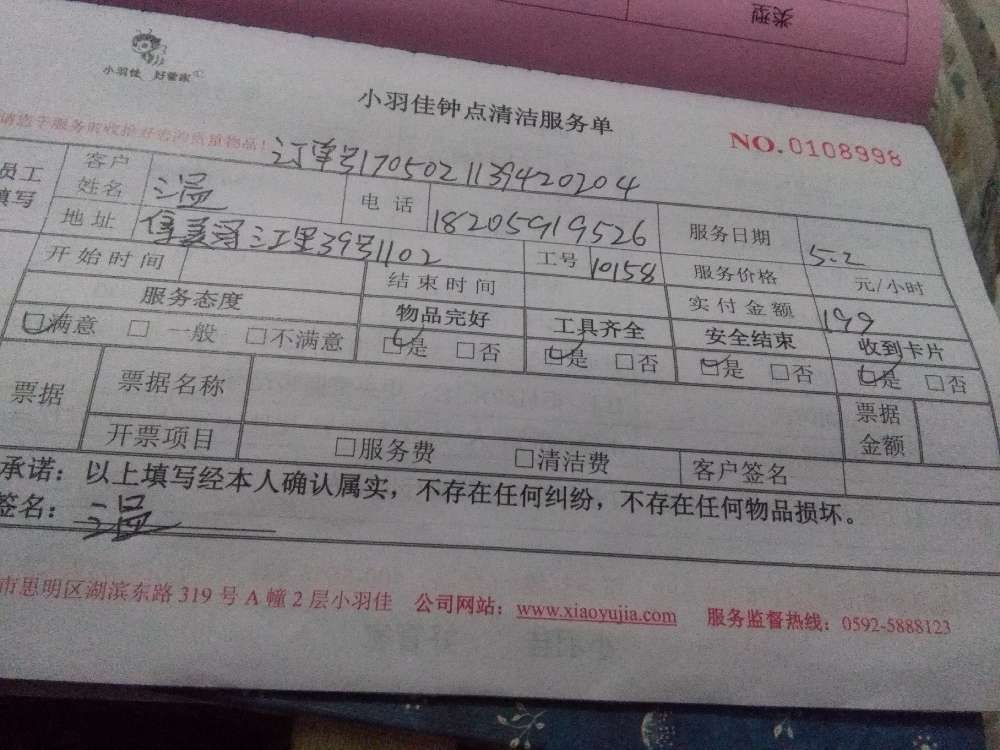 类型
小羽佳 好管家
小羽佳钟点清洁服务单
NO.0108998
服务前收拾好您的贵重物品!
订单号1705021139420204
员工填写 客户姓名 温 电话 18205919526 服务日期 5.2
地址 江里39号1102 工号 10158 服务价格 元/小时
开始时间 结束时间 实付金额 199
服务态度 物品完好 工具齐全 安全结束 收到卡片
☑满意 □一般 □不满意 ☑是 □否 ☑是 □否 ☑是 □否 ☑是 □否
票据 票据名称 票据金额
开票项目 □服务费 □清洁费 客户签名
承诺:以上填写经本人确认属实,不存在任何纠纷,不存在任何物品损坏。
签名:温
市思明区湖滨东路319号A幢2层小羽佳 公司网站:www.xiaoyujia.com 服务监督热线:0592-5888123